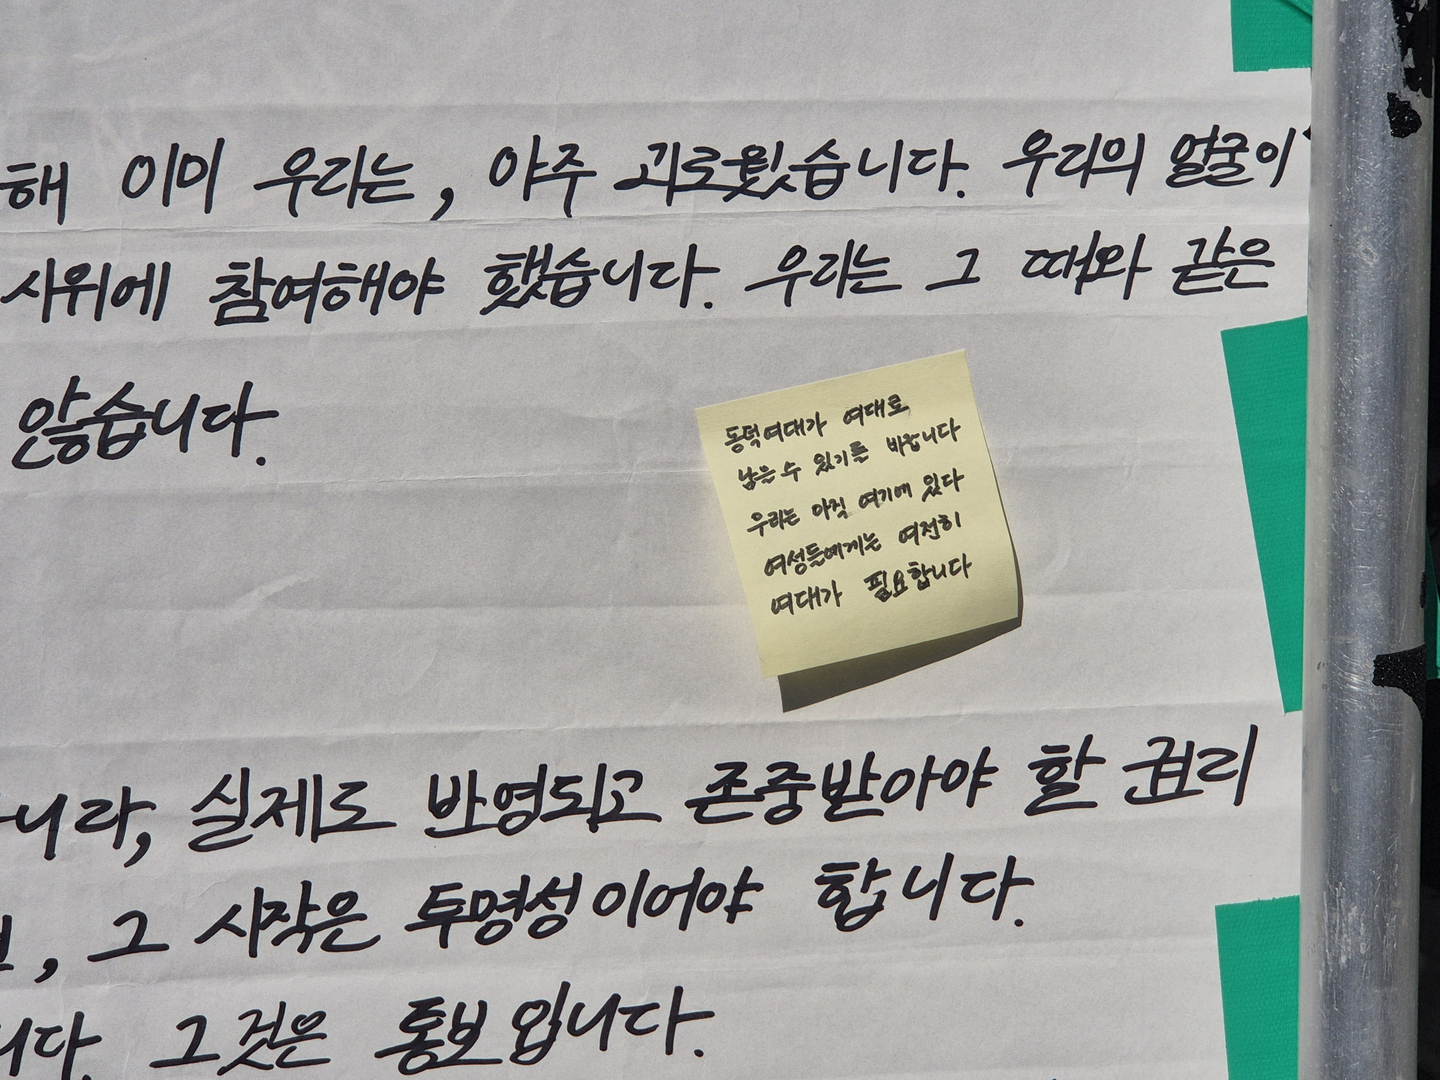 해 이미 우리는, 아주 괴로웠습니다. 우리의 얼굴이
사위에 참여해야 했습니다. 우리는 그 때와 같은
않습니다.
동덕여대가 여대로
남을 수 있기를 바랍니다
우리는 아직 여기에 있다
여성들에게는 여전히
여대가 필요합니다
니라, 실제로 반영되고 존중받아야 할 권리
, 그 시작은 투명성이어야 합니다.
니다. 그것은 통보입니다.